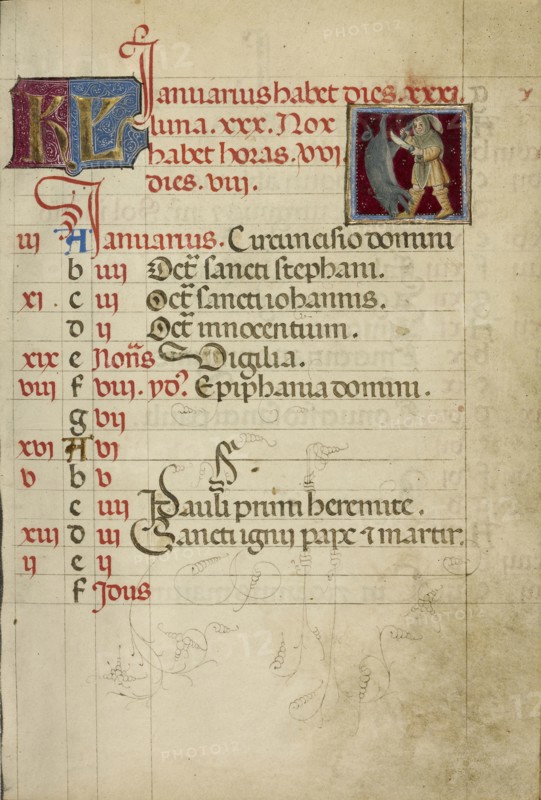 KL Januarius habet dies. xxxi.
luna. xxx. Nox
habet horas. xvi
dies. viii.
iii A Januarius. Circuncisio domini
b iiii Oct sancti stephani.
xi. c iii Oct sancti iohannis.
d ii Oct innocentium.
xix e Nons Vigilia.
viii f viii. yd? Epiphania domini.
g vii
xvi A vi
v b v
c iiii Pauli primi heremite.
xiii d iii Sancti iginii pape ⁊ martir.
ii e ii
f Idus